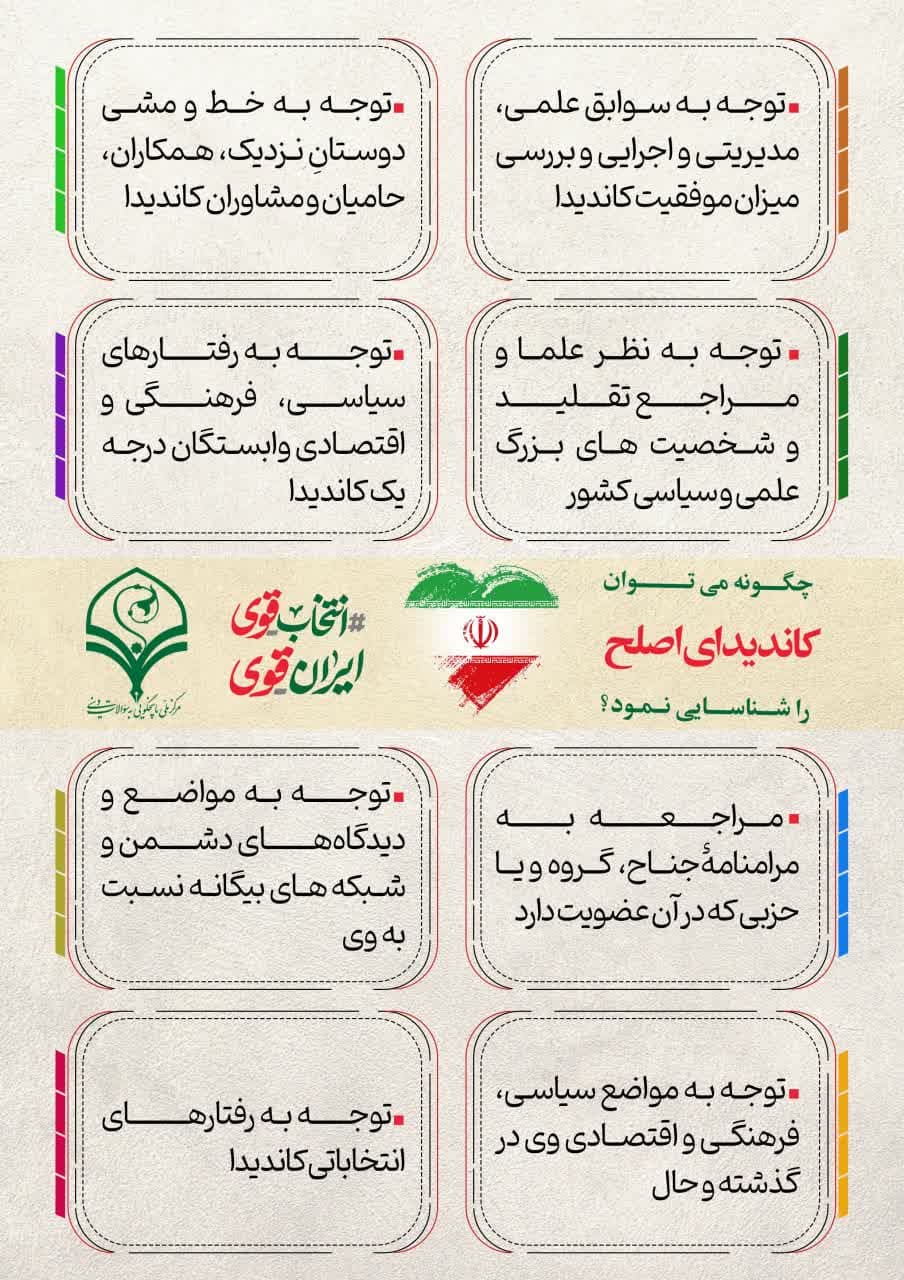 ■توجه به سوابق علمی،
مدیریتی و اجرایی و بررسی
میزان موفقیت کاندیدا
■توجه به خط و مشی
دوستانِ نزدیک، همکاران،
حامیان و مشاوران کاندیدا
■توجه به نظر علما و
مراجع تقلید
و شخصیت های بزرگ
علمی و سیاسی کشور
■توجه به رفتارهای
سیاسی، فرهنگی و
اقتصادی وابستگان درجه
یک کاندیدا
چگونه می توان
کاندیدای اصلح
را شناسایی نمود؟
#انتخاب قوی
ایران قوی
مرکز ملی پاسخگویی به سؤالات دینی
■مراجعه به
مرامنامهٔ جناح، گروه و یا
حزبی که در آن عضویت دارد
■توجه به مواضع و
دیدگاه‌های دشمن و
شبکه های بیگانه نسبت
به وی
■توجه به مواضع سیاسی،
فرهنگی و اقتصادی وی در
گذشته و حال
■توجه به رفتارهای
انتخاباتی کاندیدا